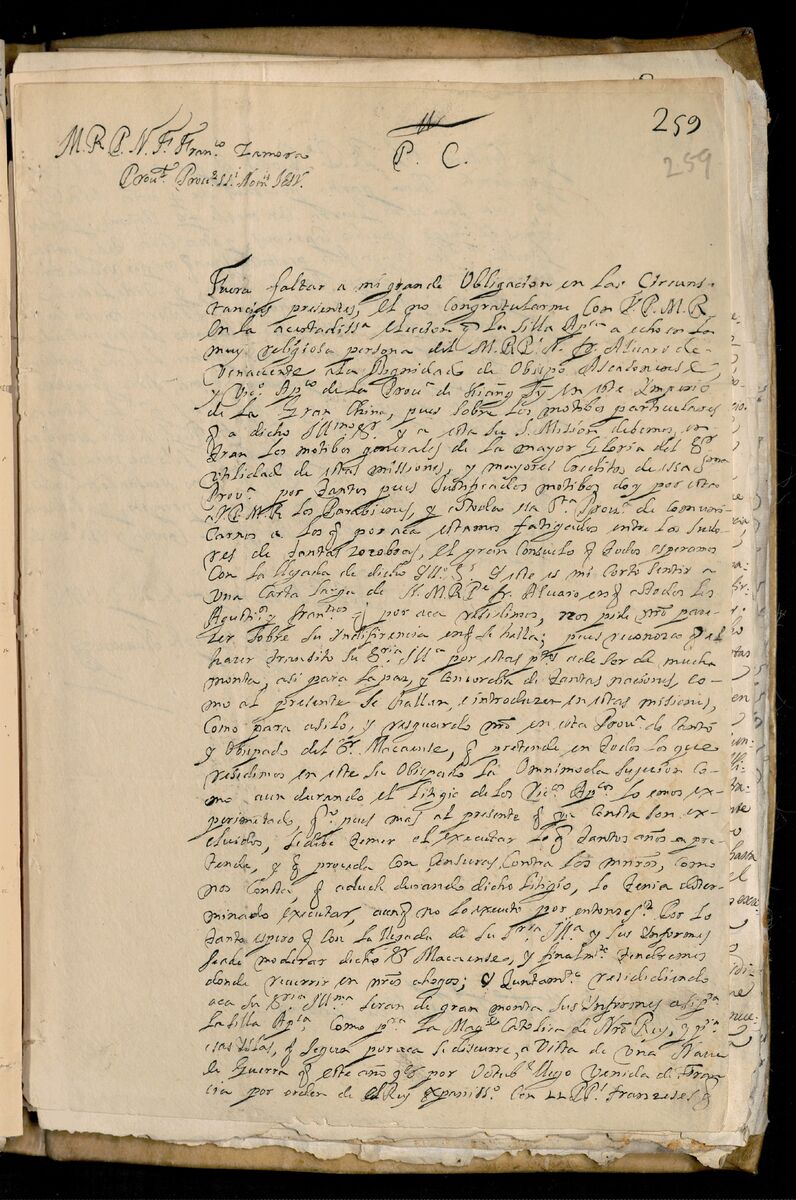 259
259
M. R. P. N. Fr. Fran.co Zamora
P. C.
Prou.l
Fuera faltar a mi grande Obligacion en las Circuns-
tancias presentes, el no Congratularme con V.P.M.R.
en la acertadiss.a eleccion q̃ la Silla Ap.ca a echo en la
muy religiosa persona del M.R.P. N. Fr. Aluaro de
Venauente a la Dignidad de Obispo Ascalonense,
y Vic.o Ap.co de la Prou.a de Kiang Sy en este Imperio
de la Gran China, pues sobre los motibos particulares
q̃ a dicho Ill.mo S.r y a esta su S. Mision debemos, en-
tran los motibos generales de la mayor Gloria del S.r
vtilidad de estas missiones, y mayores creditos de essa S.ma
Prou.a por tantos pues Iustificados motibos doy por esta
a V.P.M.R. los Parabienes, y a toda essa S.ta Prou.a de comuni-
carnos a los q̃ por aca estamos fatigados entre los sudo-
res de tantas zozobras, el gran Consuelo q̃ todos esperamos
con la llegada de dicho Ill.mo S.r Y este es mi corto sentir a
vna Carta larga de N. M.R.P.e fr. Aluaro, en q̃ a todos los
Agust.os y fran.nos q̃ por aca residimos, nos pide nr̃o pare-
zer sobre su Yndiferencia en q̃ se halla; pues reconozco q̃ el
hazer transito su S.ria Ill.a por estas p.tes a de ser de mucha
monta, asi para la paz, y Concordia de tantas naciones, co-
mo al presente se hallan, e introduzen en estas misiones,
como para asilo, y resguardo nr̃o en esta Prou.a de Canton
y Obispado del S.r Macaense, q̃ pretende en todos los que
residimos en este su Obispado la Omnimoda Sujecion co-
mo aun durando el litigio de los Vic.os Ap.cos lo emos ex-
perimentado, pues mas al presente q̃ ya consta son ex-
cluidos, se debe temer el executar lo q̃ tantos años a pre-
tende, y q̃ proceda con Censuras contra los nr̃os, como
nos consta, q̃ durando dicho litigio, lo tenia deter-
minado executar, aunq̃ no lo executo por entonces. Por lo
tanto espero q̃ con la llegada de su S.ria Ill.a y sus Informes
se a de moderar dicho S.r Macaense, y finalm.te tendremos
donde recurrir en nr̃os ahogos; Y Juntam.te residiendo
aca su S.ria Ill.ma seran de gran monta sus Informes asi p.a
la Silla Ap.ca como p.a la Mag.d Catolica de Nr̃o Rey, y p.a
esas Yslas, q̃ segun por aca se discurre, a Vista de vna Naue
de Guerra q̃ este año por Octub.e llego venida de Fran-
cia por orden de el Rey xpianiss.o con 11 PP.s franzeses q̃